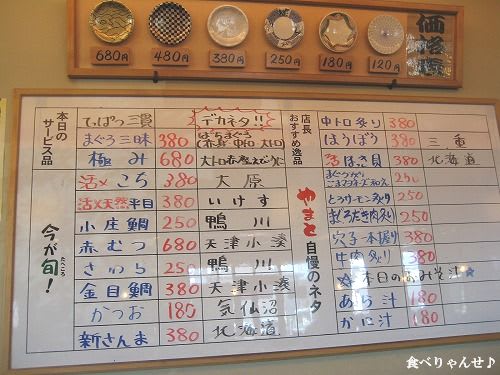 価格標
680円 480円 380円 250円 180円 120円
本日のサービス品
てっぱつ三貫 デカネタ!!
まぐろ三昧 380 ばちまぐろ(赤身 中トロ 大トロ)
極み 680
今が旬!
活〆こち 380 大原
活〆天然平目 380 いけす
小庄鯛 250 鴨川
赤むつ 680 天津小湊
さわら 250 鴨川
金目鯛 380 天津小湊
かつお 180 気仙沼
新さんま 380 北海道
店長おすすめ逸品
中トロ炙り 380
ほうぼう 380 三重
活ほっき貝 380 北海道
やまと自慢のネタ
250
とろサーモン炙り 250
まぐろだき肉炙り 250
穴子一本握り 380
牛肉炙り 380
☆本日のおみそ汁☆
あら汁 180
かに汁 180
食べりゃんせ♪